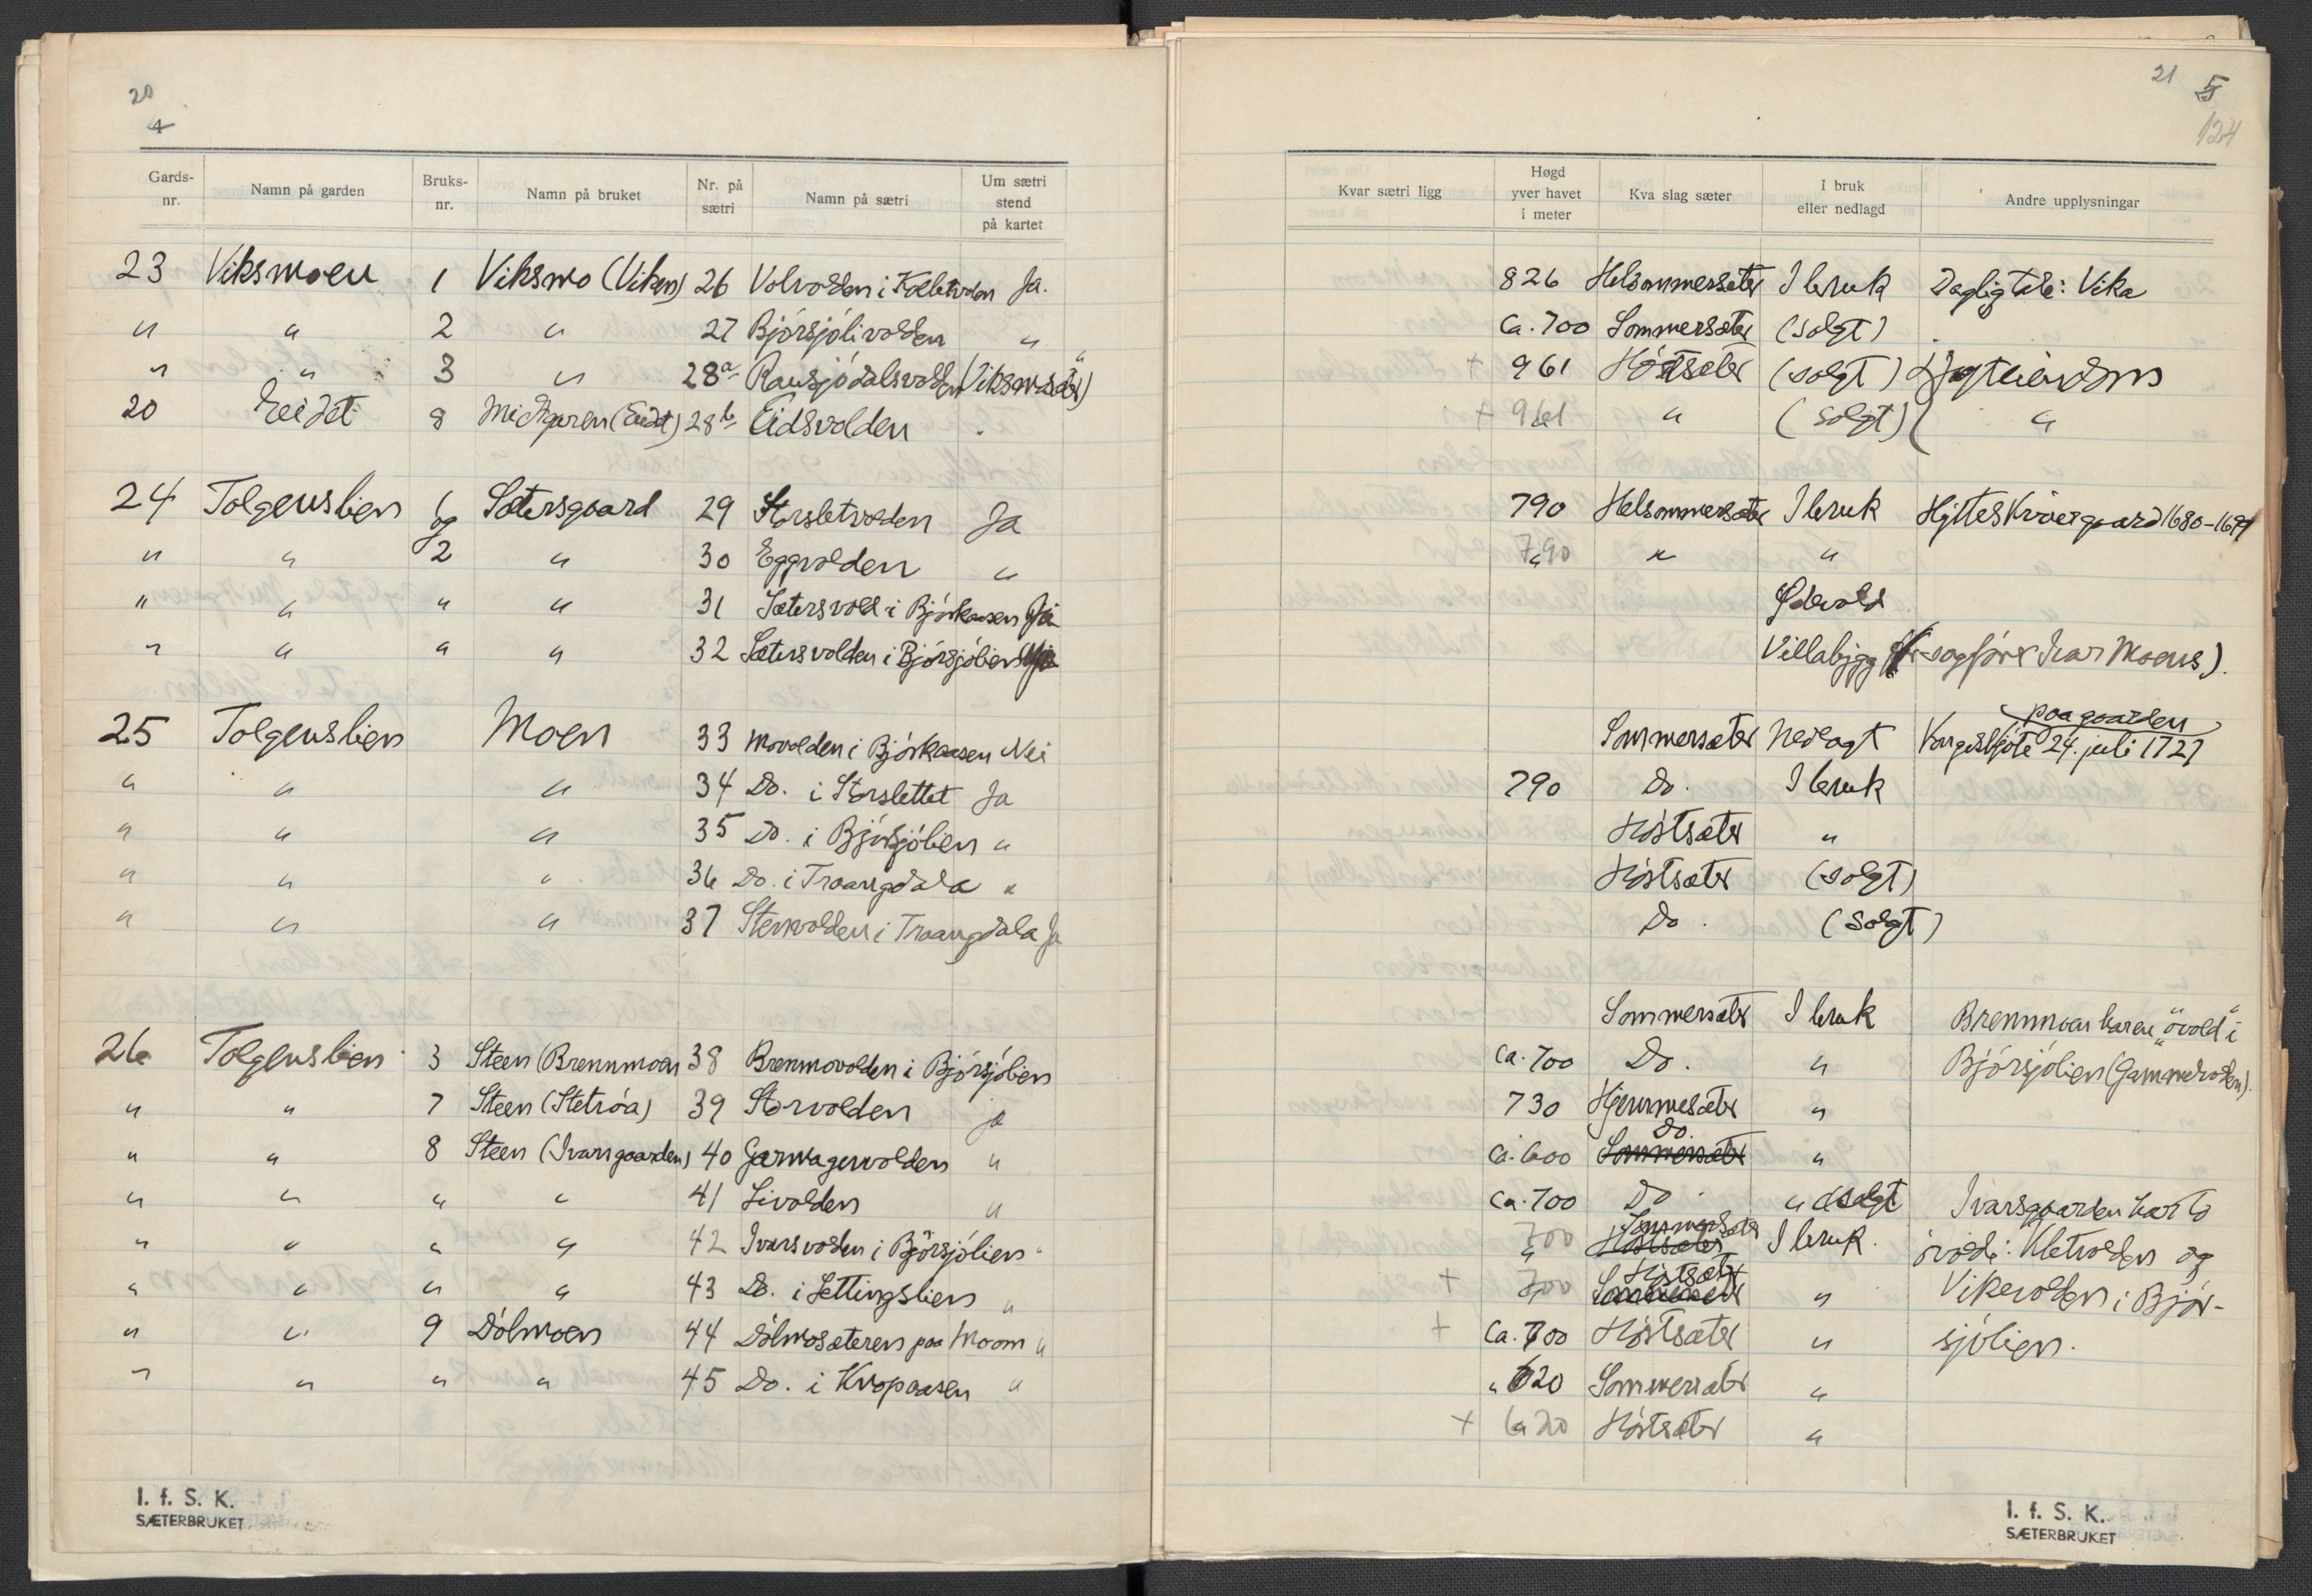 20
4
Gards-nr. Namn på garden Bruks-nr. Namn på bruket Nr. på sætri Namn på sætri Um sætri stend på kartet
23 Viksmoen 1 Viksmo (Viken) 26 Volvolden i Kolbetvolen Ja.
" " 2 " 27 Bjórsjólivolden "
" " 3 " 28a Rausjódalsvolden (Viksmosæter) "
20 Eidet 8 Midtgaren (Eidet) 28b Eidsvolden
24 Tolgenslien 1 Sætersgaard 29 Storsletvolden Ja
og
" " 2 " 30 Eggvolden "
" " " " 31 Sætersvold i Bjórkaasen Ja
" " " " 32 Sætersvolden i Bjórsjólien Ja
25 Tolgenslien Moen 33 Movolden i Bjórkaasen Nei
" " " 34 Do. i Storslettet Ja
" " " 35 Do. i Bjórsjólien "
" " " 36 Do. i Traangdala "
" " " 37 Stenvolden i Traangdala Ja
26 Tolgenslien 3 Steen (Brennmoen 38 Brenmovolden i Bjórsjólien
" " 7 Steen (Stetróa) 39 Storvolden ja
" " 8 Steen (Ivarsgaarden) 40 Garmagervolden "
" " " " 41 Livolden "
" " " " 42 Ivarsvolden i Bjórsjólien "
" " " " 43 Do. i Settingslien "
" " 9 Dólmoen 44 Dólmosæteren paa Moom "
" " " " 45 Do. i Kvopaasen "
I. f. S. K.
SÆTERBRUKET
21 5
124
Kvar sætri ligg Høgd yver havet i meter Kva slag sæter I bruk eller nedlagd Andre upplysningar
826 Helsommersæter I bruk Dagligtale: Vika
Ca. 700 Sommersæter (solgt)
+ 961 Hóstsæter (solgt) Jagteiendom
+ 961 " (solgt) ( "
790 Helsommersæter I bruk Hytteskrivergaard 1680-1699
790 " "
Ødevold
Villabygg (sagfører Ivar Moens).
paa gaarden
Sommersæter Nedlagt Kongeskjóte 24. juli 1727
790 Do. I bruk
Hóstsæter "
Hóstsæter (solgt)
Do. (solgt)
Sommersæter I bruk Brennmoen har en "óvold" i
Ca. 700 Do. " Bjórsjólien (Gammelvolden).
730 Hjemmesæter "
Do.
Ca. 600 Sommersæter "
Ca. 700 Do. " dsolgt Ivarsgaarden har to
Sommersæter
700 Hóstsæter I bruk. óvolde: Kletvolden og
Hóstsæter
+ 700 Sommersæter " Vikevolden i Bjór-
+ Ca. 700 Hóstsæter " sjólien.
" 620 Sommersæter "
+ 620 Hóstsæter "
I. f. S. K.
SÆTERBRUKET